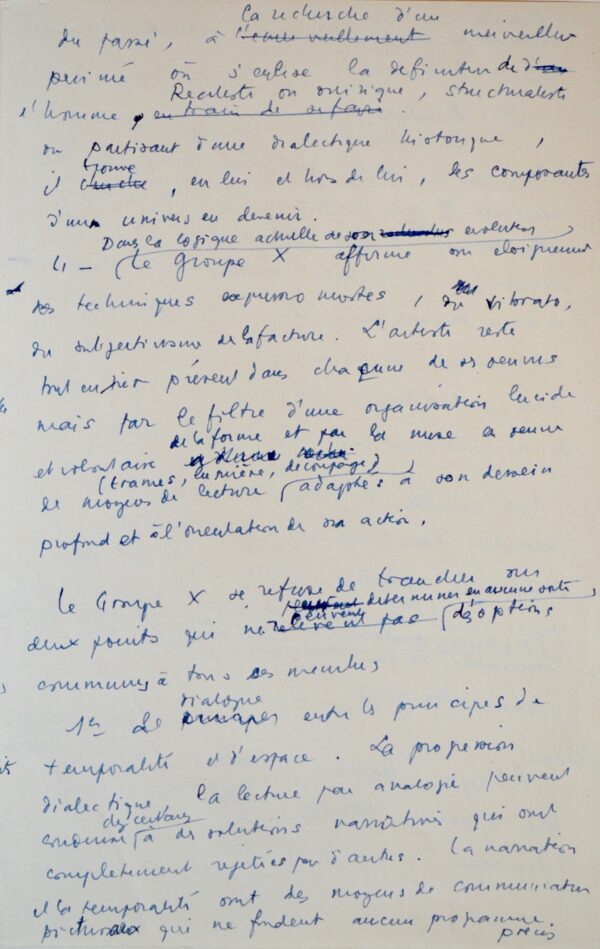 la recherche d'un
du passé, à l'émerveillement merveilleux
périmé où s'enlise la définition de d'un
Réaliste ou onirique, structuraliste
l'homme, en train de se faire.
ou partisan d'une dialectique historique,
trouve
il cherche, en lui et hors de lui, les composantes
d'un univers en devenir.
Dans la logique actuelle de son recherches évolution
4 - (le Groupe X affirme son éloignement
des techniques expressionnistes, du vibrato,
du subjectivisme de la facture. L'artiste reste
tout entier présent dans chacune de ses œuvres
mais par le filtre d'une organisation lucide
de la forme et par la mise en œuvre
et volontaire
(trames, lumière, découpage)
de moyens de lecture (adaptés à son dessein
profond et à l'orientation de son action.
Le Groupe X se refuse de trancher sur
déterminer en aucune sorte
peuvent
deux points qui ne relèvent pas (d'options
communes à tous ses membres
dialogue
1er Le entre les principes de
temporalité et d'espace. La progression
dialectique la lecture par analogie peuvent
des certains
conduire (à des solutions narratives qui sont
complètement rejetées par d'autres. La narration
et la temporalité sont des moyens de communication
picturaux qui ne fondent aucun programme.
précis